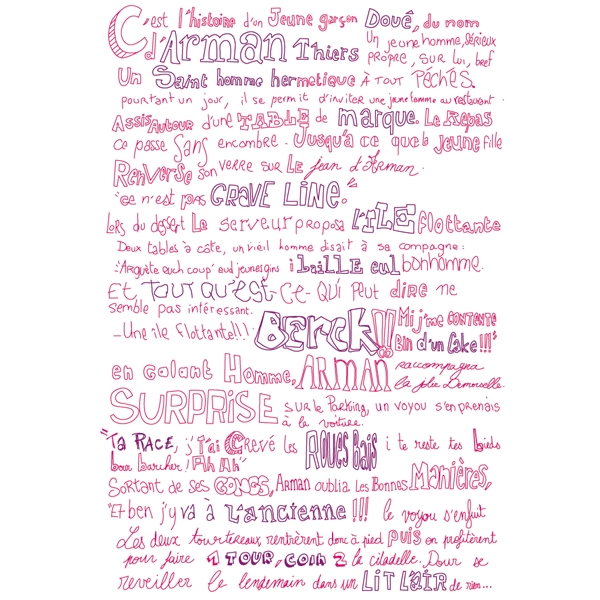 C'est l'histoire d'un Jeune garçon Doué, du nom
d'Arman Thiers Un jeune homme, sérieux
propre, sur lui, bref
Un Saint homme hermetique à tout péchés.
pourtant un jour, il se permit d'inviter une jeune femme au restaurant.
Assis Autour d'une TABLE de marque. Le Repas
ce passe Sans encombre. Jusqu'à ce que la jeune fille
Renverse son verre sur Le jean d'Arman.
"ce n'est pas GRAVE LINE."
Lors du dessert Le serveur proposa l'ILE flottante
Deux tables à côte, un vieil homme disait à sa compagne:
"Arguête euch coup' eud jeunes gins i baille eul bonhomme.
Et Tout qu'est-ce-qui peut dire ne
semble pas intéressant.
-Une ile flottante!!! Berck!! Mi j'me contente
Bin d'un Cake!!!"
en galant Homme, Arman raccompagna
la jolie Demoiselle.
SURPRISE sur le Parking, un voyou s'en prenais
à la voiture.
"Ta RACE, j't'ai Crevé les Roues Bais i te reste tes bieds
bour barcher! Ah Ah"
Sortant de ses GONGS, Arman oublia les Bonnes Manières,
"Et ben j'y va à l'ancienne!!! le voyou s'enfuit
Les deux tourteraux, rentrèrent donc à pied puis en profitèrent
pour faire 1 TOUR, COIN 2 la citadelle. Pour se
reveiller le lendemain dans un LIT L'AIR de rien...